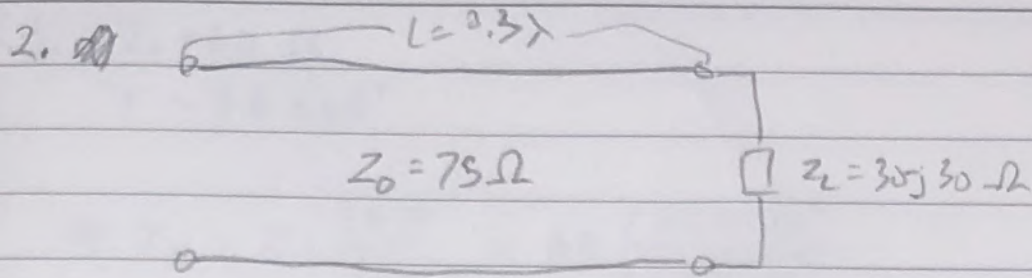 2.
L = 0.3λ
Z₀ = 75 Ω
Z_L = 30-j30 Ω